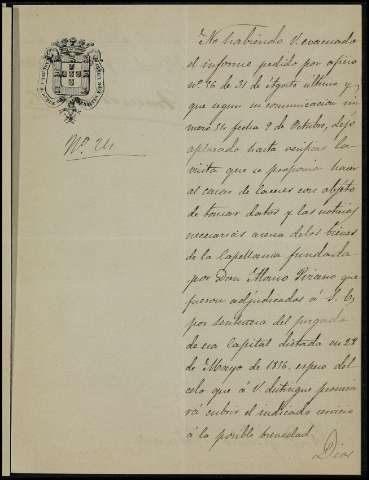 Nº 24
No habiendo V. evacuado
el informe pedido por oficio
nº 26 de 31 de Agosto último y
que segun su comunicacion nú
mero 34 fecha 9 de Octubre, dejó
aplazado hasta verificar la
visita que se proponia hacer
al casar de Caceres con objeto
de tomar datos y las noticias
necesarias acerca de los bienes
de la Capellania fundada
por Don Alonso Pizano que
fueron adjudicados á S. E.
por sentencia del juzgado
de esa Capital dictada en 28
de Mayo de 1876, espero del
celo que á V. distingue procura
rá cubrir el indicado servicio
á la posible brevedad.
Dios